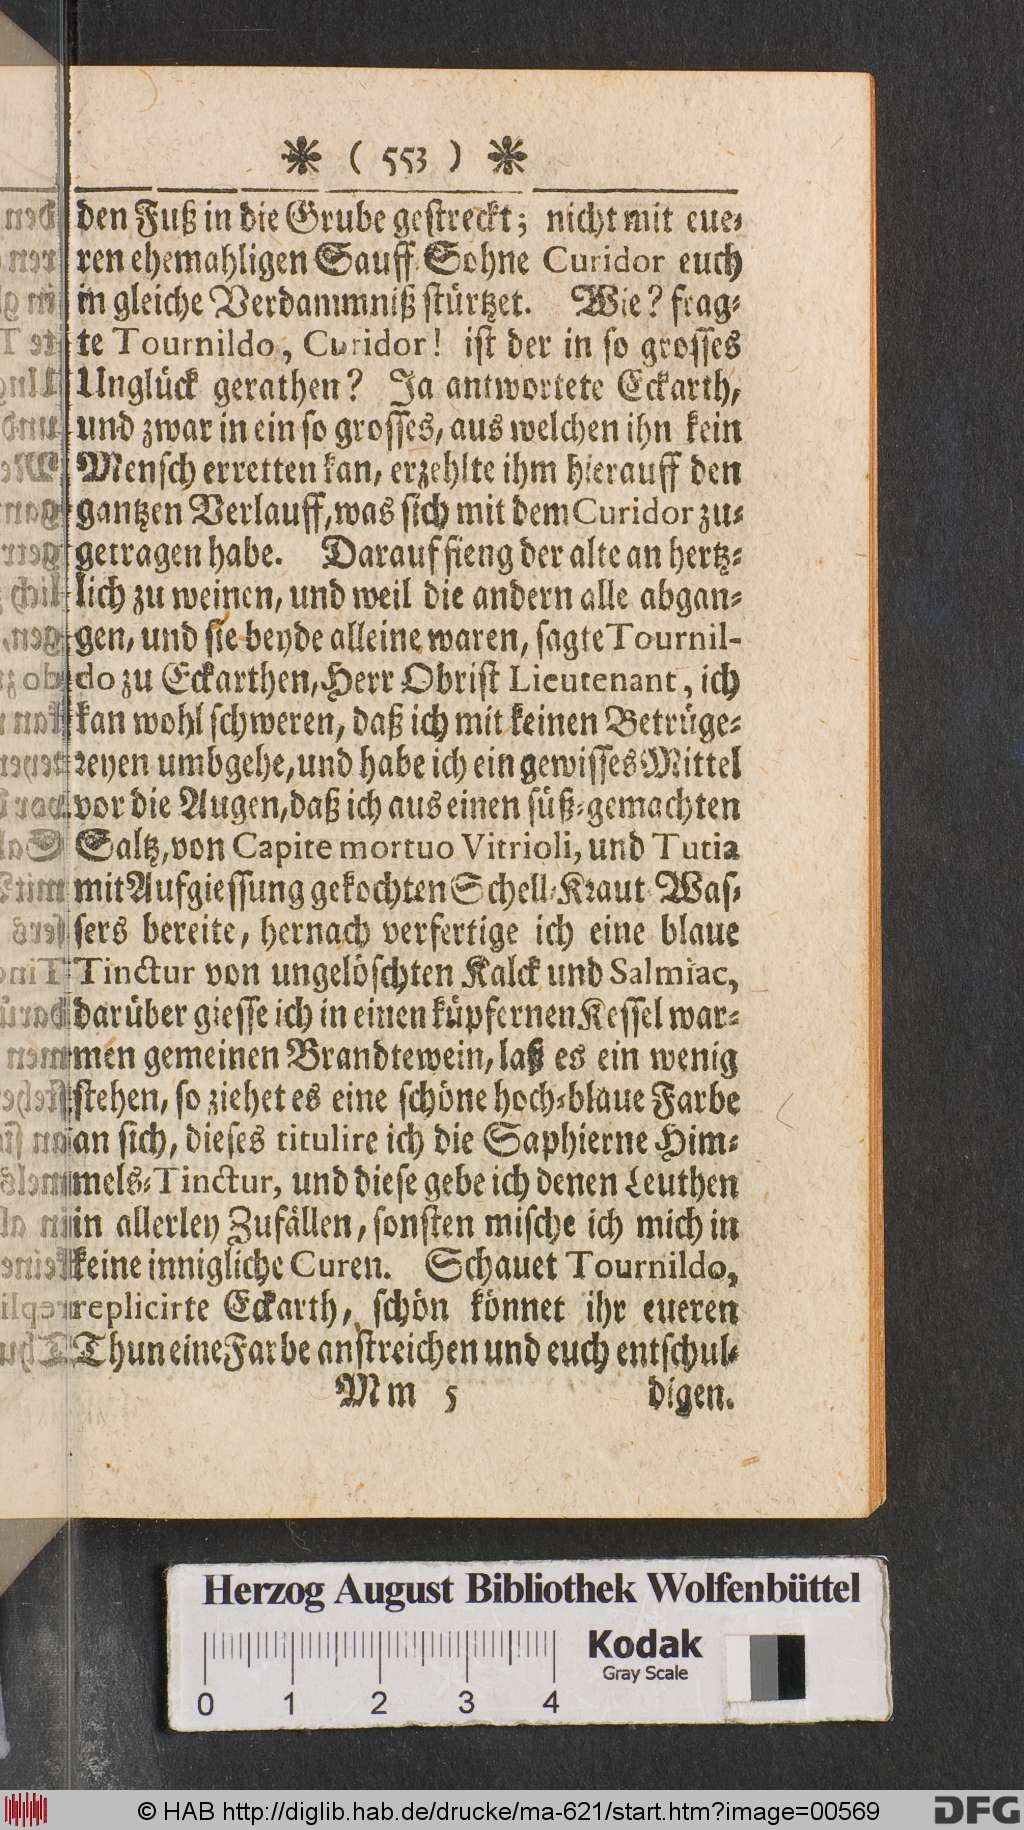 * ( 553 ) *
den Fuß in die Grube gestreckt; nicht mit eue-
ren ehemahligen Sauff-Sohne Curidor euch
in gleiche Verdammniß stürtzet. Wie? frag-
te Tournildo, Curidor! ist der in so grosses
Unglück gerathen? Ja antwortete Eckarth,
und zwar in ein so grosses, aus welchen ihn kein
Mensch erretten kan, erzehlte ihm hierauff den
gantzen Verlauff, was sich mit dem Curidor zu-
getragen habe. Darauf fieng der alte an hertz-
lich zu weinen, und weil die andern alle abgan-
gen, und sie beyde alleine waren, sagte Tournil-
do zu Eckarthen, Herr Obrist Lieutenant, ich
kan wohl schweren, daß ich mit keinen Betrüge-
reyen umbgehe, und habe ich ein gewisses Mittel
vor die Augen, daß ich aus einen süß-gemachten
Saltz, von Capite mortuo Vitrioli, und Tutia
mit Aufgiessung gekochten Schell-Kraut-Was-
sers bereite, hernach verfertige ich eine blaue
Tinctur von ungelöschten Kalck und Salmiac,
darüber giesse ich in einen küpfernen Kessel war-
men gemeinen Brandtewein, laß es ein wenig
stehen, so ziehet es eine schöne hoch-blaue Farbe
an sich, dieses titulire ich die Saphierne Him-
mels-Tinctur, und diese gebe ich denen Leuthen
in allerley Zufällen, sonsten mische ich mich in
keine innigliche Curen. Schauet Tournildo,
replicirte Eckarth, schön könnet ihr eueren
Thun eine Farbe anstreichen und euch entschul-
Mm 5 digen.
Herzog August Bibliothek Wolfenbüttel
Kodak
Gray Scale
0 1 2 3 4
© HAB http://diglib.hab.de/drucke/ma-621/start.htm?image=00569
DFG